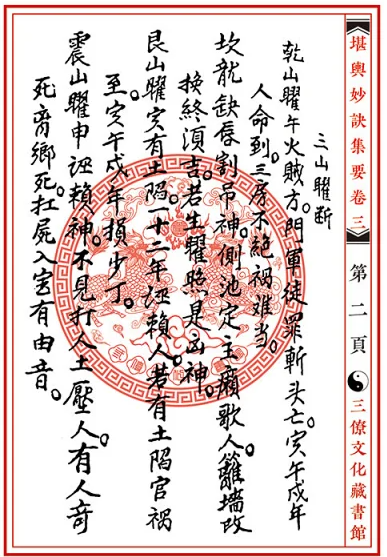 堪輿妙訣集要卷三
第二頁
三僚文化藏書館
三山曜断
乾山曜午火賊方。門軍徒罪斬头亡。亥午戌年
人命到。三房不絕禍难当。
坎龍缺唇割吊神。側池定主癩歌人。籬墻改
换終須吉。若生曜照是凶神。
艮山曜寅有土陷。一十二年逕賴人。若有土陷官祸
至。寅午戌年損少丁。
震山曜申逕賴神。不見打人土壓人。有人奇
死离鄉死。扛屍入宅有由音。